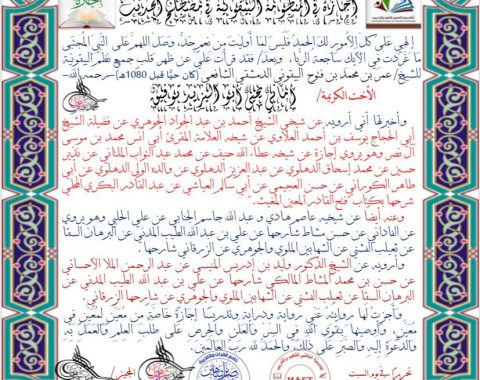 إجازة في المنظومة البيقونية في مصطلح الحديث
إلهي على كل الأمور لك الحمد فليس لما أوليت من نعم حد، وصل اللهم على النبي المجتبى
ما غردت في الأيك ساجعة الربا، وبعد/ فقد قرأت علي عن ظهر قلب جميع نظم البيقونية
للشيخ/ عمر بن محمد بن فتوح البيقوني الدمشقي الشافعي (كان حيًا قبل 1080هـ) -رحمه الله-
الأخت الكريمة/
وأخبرتها أني أرويه عن شيخي الشيخ أحمد بن عبد الجواد الجوهري عن فضيلة الشيخ
أبي الحجاج يوسف بن أحمد العلاوي عن شيخه العلامة المقرئ أبي أنس محمد بن موسى
آل نصر وهو يروي إجازة عن شيخه عطاء الله حنيف عن محمد عبد التواب الملتاني عن نذير
حسين عن محمد إسحاق الدهلوي عن عبد العزيز الدهلوي عن والده الولي الدهلوي عن أبي
طاهر الكوراني عن حسن العجيمي عن أبي سالم العياشي عن عبد القادر بكري المحلي
شرحها بكتاب "فتح القادر المعين المغيث".
وعنه أيضا عن شيخيه عاصم هادي و عبد الله جاسم الجنابي عن علي الحلبي وهو يروي
عن الفاداني عن حسن مشاط شارحها عن علي بن عبد الله الطيب المدني عن البرهان السقا
عن ثعيلب الفشني عن الشهابين الملوي والجوهري عن الزرقاني شارحها.
وأرويه عن الشيخ الدكتور وليد بن إدريس المنيسي عن عبد الرحمن الملا الأحسائي
عن حسن بن محمد المشاط المالكي شارحها عن علي بن عبد الله الطيب المدني عن
البرهان السقا عن ثعيلب الفشني عن الشهابين الملوي والجوهري عن شارحها الزرقاني.
وأجزت لها روايته عني رواية ودراية وتدريسًا إجازة خاصة من معين لمعين في
معين، وأوصيها بتقوى الله في السر والعلن والحرص على طلب العلم والعمل به
والدعوة إليه والصبر على ذلك، والحمد لله رب العالمين.
المجيز/
تحريرا في يوم السبت